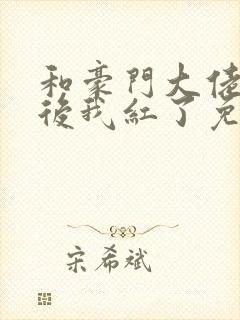 和豪門大佬
後我紅了免
宋希斌